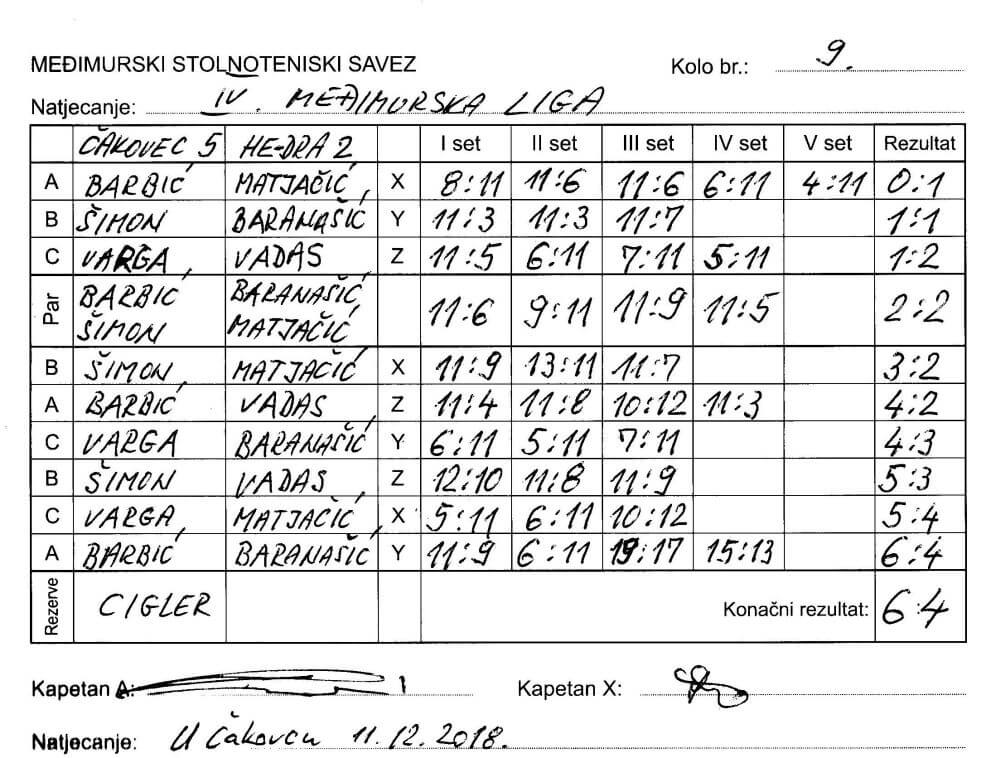 MEĐIMURSKI STOLNOTENISKI SAVEZ
Kolo br.: 9.
Natjecanje: IV. MEĐIMURSKA LIGA
ČAKOVEC 5 HE-DRA 2 I set II set III set IV set V set Rezultat
A BARBIĆ MATJAČIĆ X 8:11 11:6 11:6 6:11 4:11 0:1
B ŠIMON BARANAŠIĆ Y 11:3 11:3 11:7 1:1
C VARGA VADAS Z 11:5 6:11 7:11 5:11 1:2
Par BARBIĆ BARANAŠIĆ 11:6 9:11 11:9 11:5 2:2
ŠIMON MATJAČIĆ
B ŠIMON MATJAČIĆ X 11:9 13:11 11:7 3:2
A BARBIĆ VADAS Z 11:4 11:8 10:12 11:3 4:2
C VARGA BARANAŠIĆ Y 6:11 5:11 7:11 4:3
B ŠIMON VADAS Z 12:10 11:8 11:9 5:3
C VARGA MATJAČIĆ X 5:11 6:11 10:12 5:4
A BARBIĆ BARANAŠIĆ Y 11:9 6:11 19:17 15:13 6:4
Rezerve CIGLER Konačni rezultat: 6:4
Kapetan A: Kapetan X:
Natjecanje: U Čakovcu 11.12.2018.